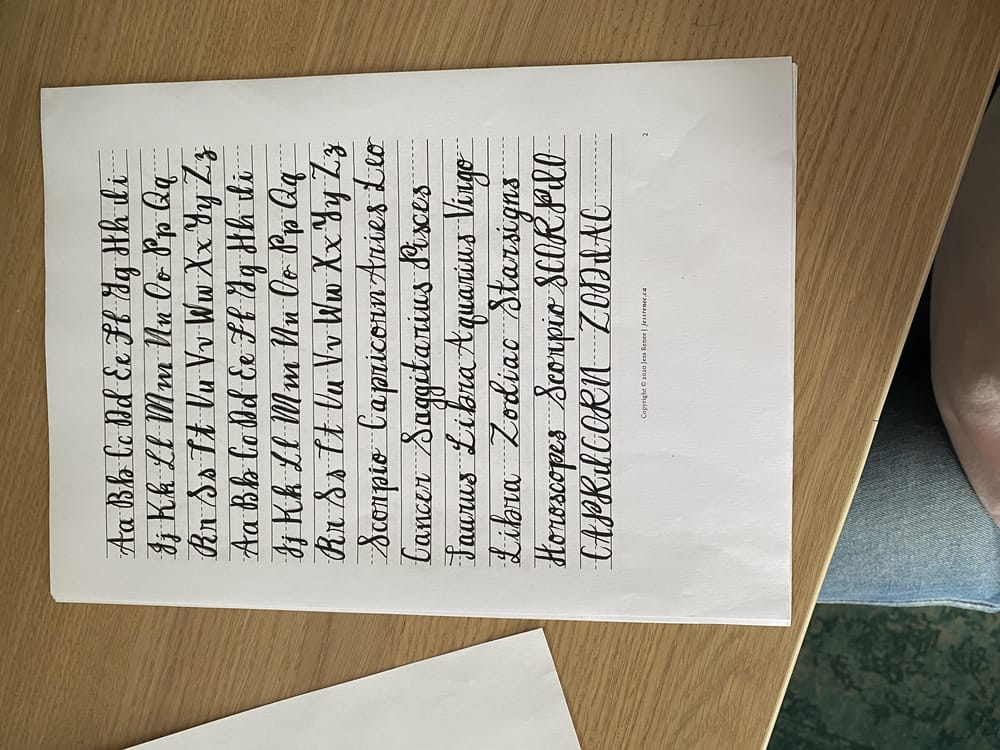 Aa Bb Cc Dd Ee Ff Gg Hh Ii
Jj Kk Ll Mm Nn Oo Pp Qq
Rr Ss Tt Uu Vv Ww Xx Yy Zz
Aa Bb Cc Dd Ee Ff Gg Hh Ii
Jj Kk Ll Mm Nn Oo Pp Qq
Rr Ss Tt Uu Vv Ww Xx Yy Zz
Scorpio Capricorn Aries Leo
Cancer Saggitarius Pisces
Taurus Libra Aquarius Virgo
Libra Zodiac Starsigns
Horoscopes Scorpio SCORPIO
CAPRICORN ZODIAC
Copyright © 2020 Jess Renee | jessrenee.ca
2